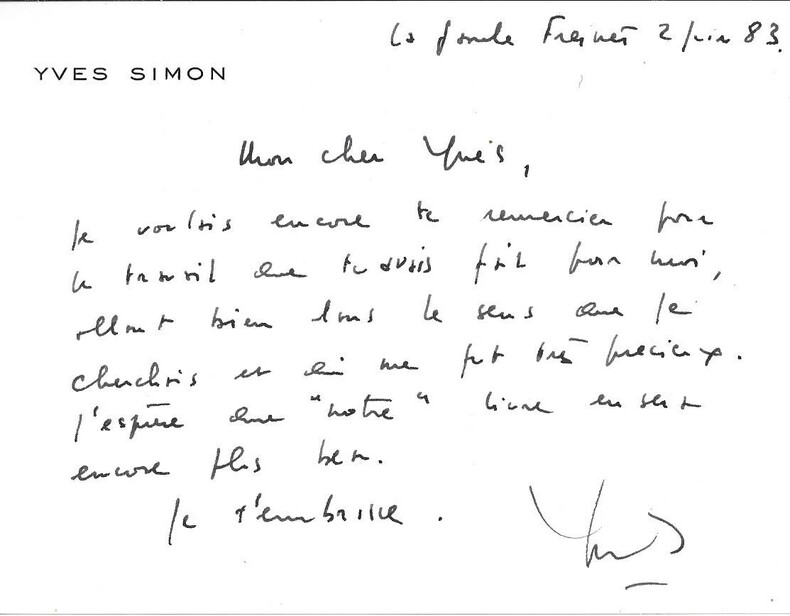 La Fresnes 2 juin 83.
YVES SIMON
Mon cher Yves,
Je voulais encore te remercier pour
le travail que tu avais fait pour moi,
allant bien dans le sens que je
cherchais et qui me fut très précieux.
J'espère que "notre" livre en sera
encore plus beau.
Je t'embrasse.
Yves